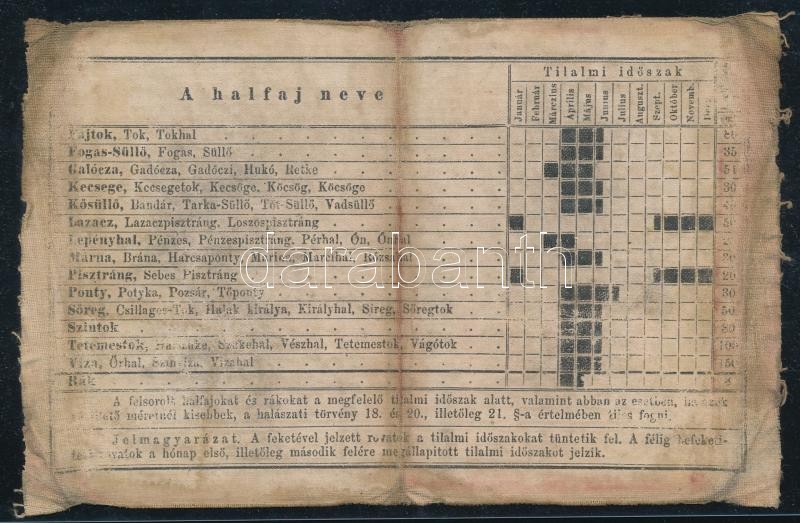 Tilalmi időszak
A halfaj neve
Január
Február
Márczius
Április
Május
Junius
Julius
Auguszt.
Szept.
Október
Novemb.
Tok, Tokhal
Fogas-Süllő, Fogas, Süllő 35
Galócza, Gadócza, Gadóczi, Hukó, Retke
Kecsege, Kecsegetok, Kecsőge, Köcsög, Köcsöge 30
Kősüllő, Bandár, Tarka-Süllő, Tót-Süllő, Vadsüllő
Lazacz, Lazaczpisztráng, Loszospisztráng
Lepényhal, Pénzes, Pénzespisztráng, Pérhal, Ón,
Márna, Brána, Harcsaponty, Rózsahal
Pisztráng, Sebes Pisztráng 20
Ponty, Potyka, Pozsár, Tőponty 30
Sőreg, Csillagos-Tok, Halak királya, Királyhal, Sireg, Sőregtok
Szintok
Tetemestok, Szökehal, Vészhal, Tetemestok, Vágótok
Viza, Őrhal, Vizahal
Rák
A felsorolt halfajokat és rákokat a megfelelő tilalmi időszak alatt, valamint abban az esetben,
méretnél kisebbek, a halászati törvény 18. és 20., illetőleg 21. §-a értelmében tilos fogni.
Jelmagyarázat. A feketével jelzett rovatok a tilalmi időszakokat tüntetik fel. A félig befeketí-
a hónap első, illetőleg második felére megállapitott tilalmi időszakot jelzik.
darabanth